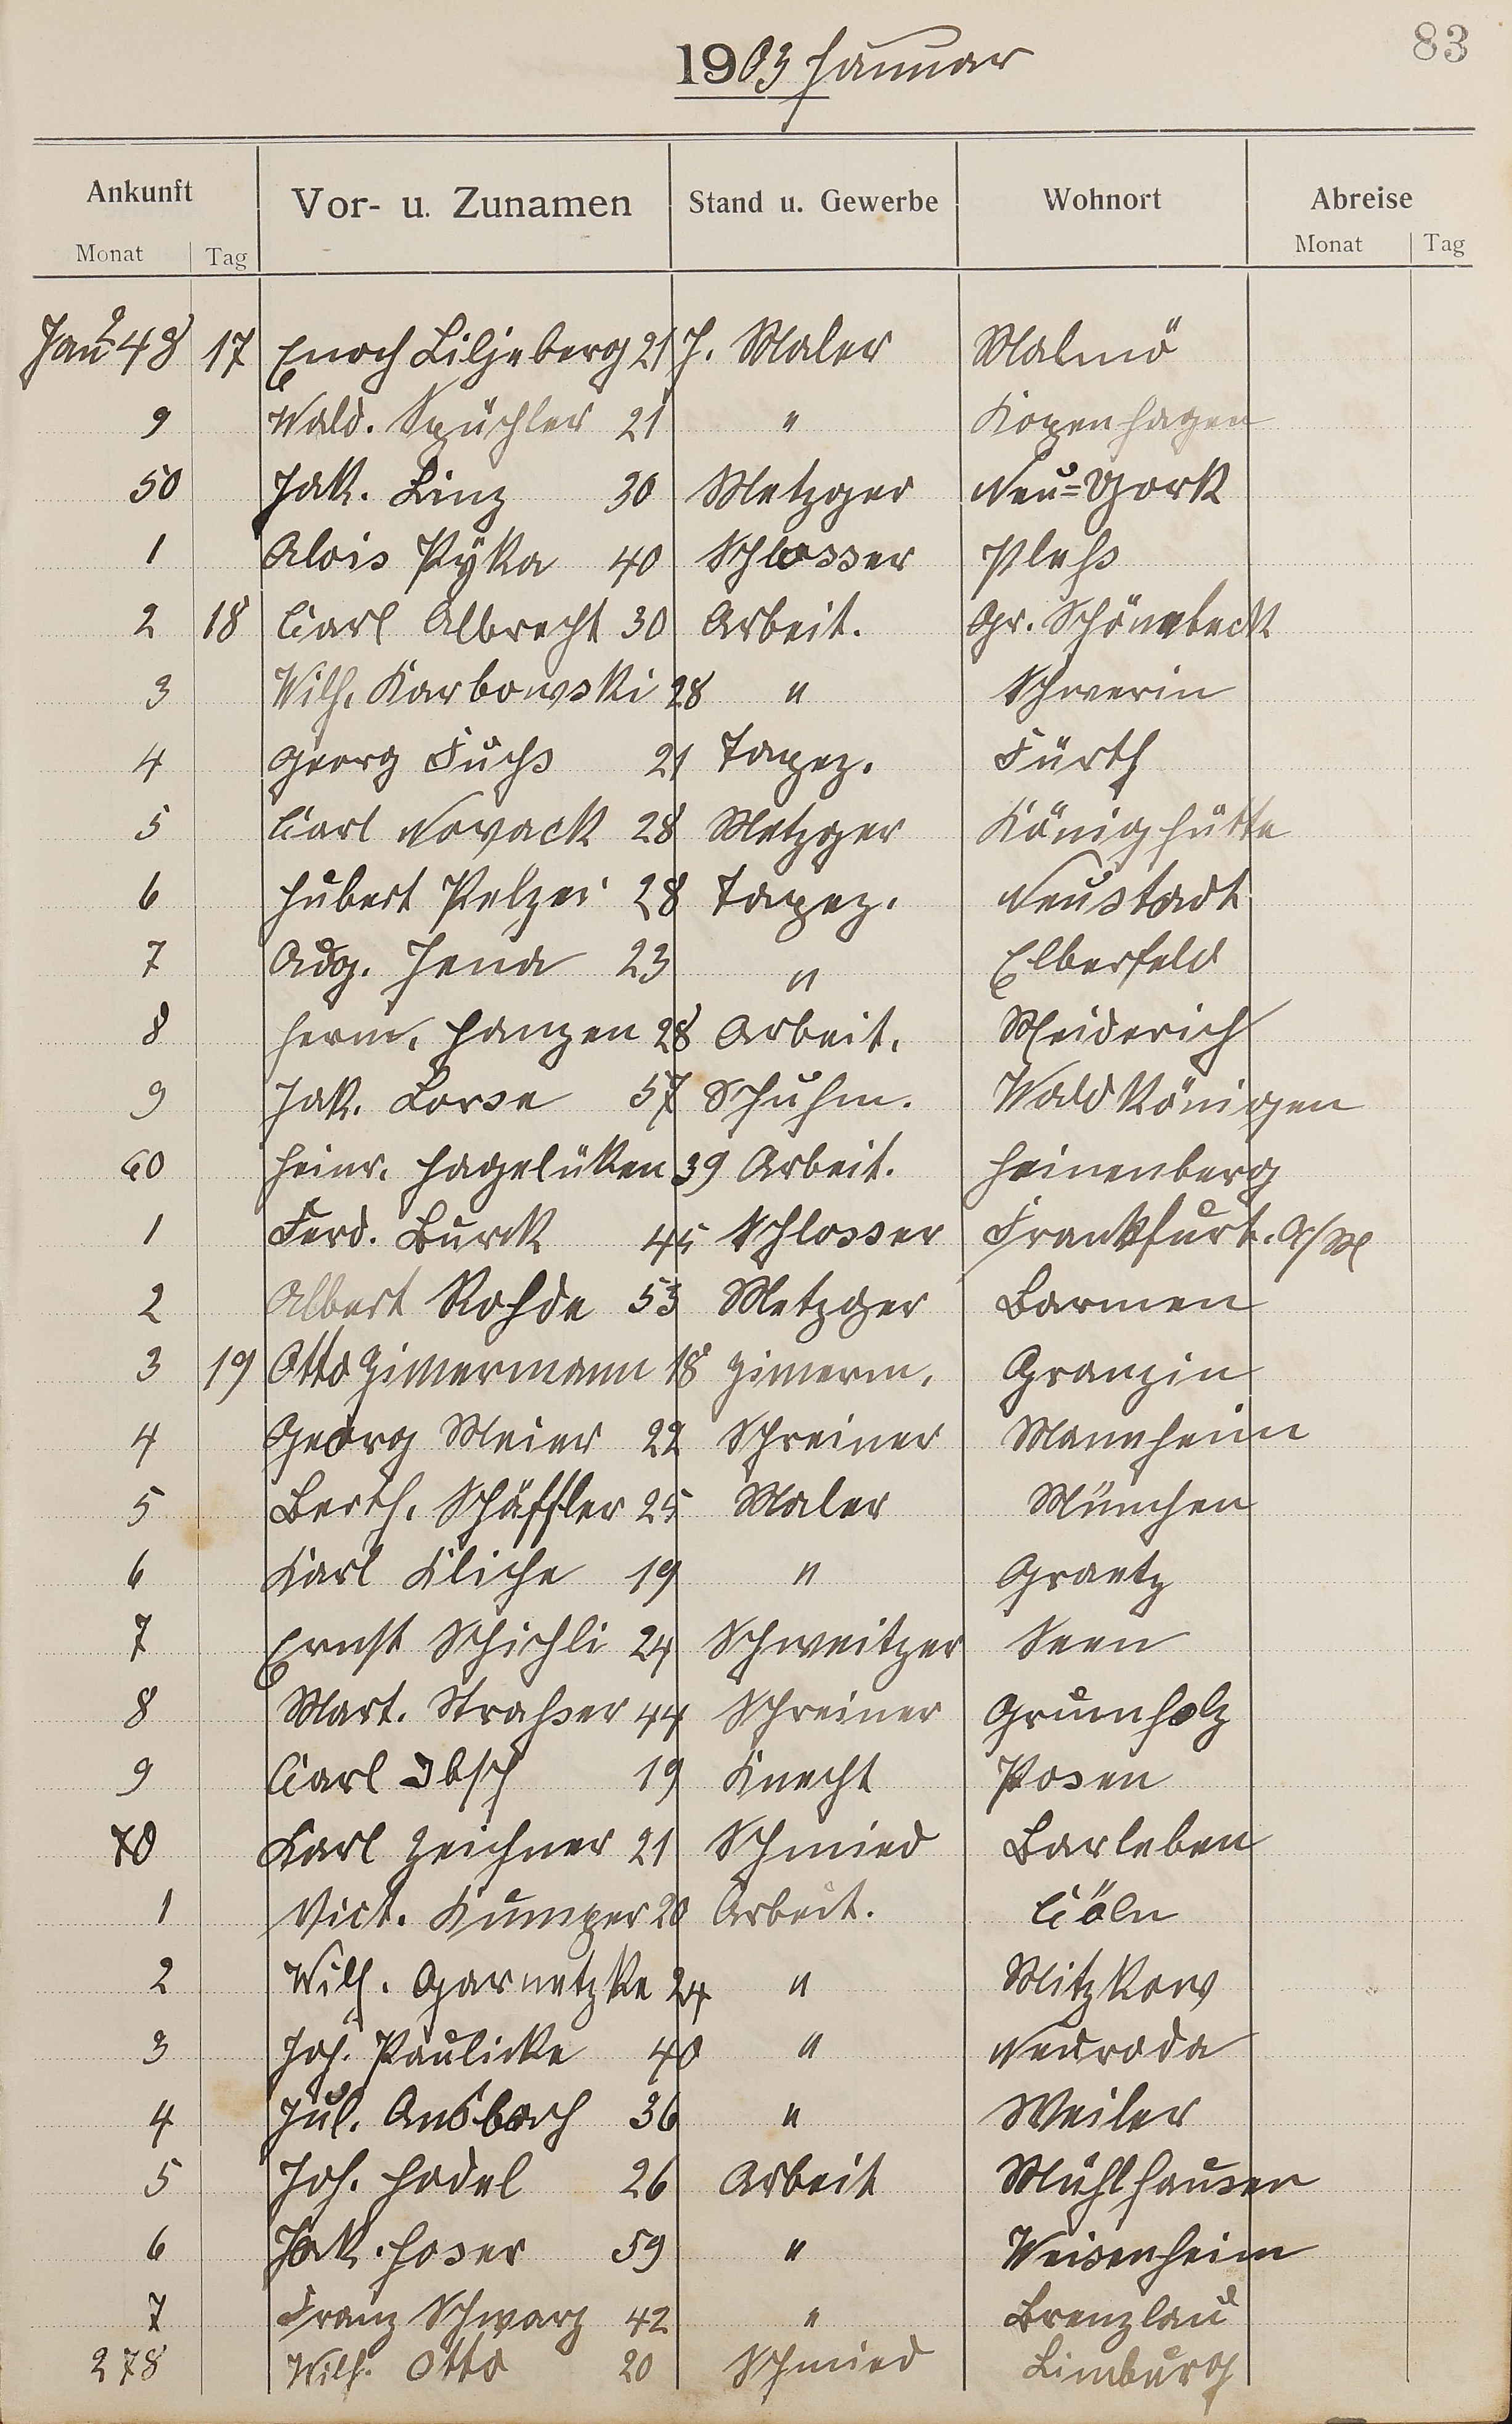 83
1903 Januar
Ankunft Vor- u. Zunamen Stand u. Gewerbe Wohnort Abreise
Monat Tag Monat Tag
Jan 248 17 Enoch Liljeberg 21 J. Maler Malmö
9 Wald. Spüchler 21 " Kopenhagen
50 Jak. Linz 30 Metzger Neu=York
1 Alois Pyka 40 Schlosser Pleß
2 18 Carl Albrecht 30 Arbeit. Gr. Schönebeck
3 Wilh. Karbowski 28 " Schwerin
4 Georg Fuchs 21 Tapez. Fürth
5 Carl Novack 28 Metzger Königshütte
6 Hubert Pelzer 28 Tapez. Neustadt
7 Aug. Jena 23 " Elberfeld
8 Herm. Hanzen 28 Arbeit. Meiderich
9 Jak. Lorse 57 Schuhm. Waldkönigen
60 Heinr. Hagelüken 39 Arbeit. Heinenberg
1 Ferd. Burck 45 Schlosser Frankfurt. a/M
2 Albert Rohde 53 Metzger Barmen
3 19 Otto Zimermann 18 Zimerm. Granzin
4 Georg Meier 22 Schreiner Mannheim
5 Berth. Schäffler 25 Maler München
6 Karl Kliche 19 " Graetz
7 Ernst Schichli 24 Schweitzer Seen
8 Mart. Straßer 44 Schreiner Grumholz
9 Carl Ibsch 19 Knecht Posen
70 Karl Zeichner 21 Schmied Barleben
1 Vict. Kumper 20 Arbeit. Cöln
2 Wilh. Garnetzke 24 " Mitzkow
3 Joh. Paulicke 40 " Neuroda
4 Jul. Ansbach 36 " Weiler
5 Joh. Hadel 26 Arbeit Mühlhausen
6 Jak. Hoser 59 " Weisenheim
7 Franz Schwarz 42 " Brenzlau
278 Wilh. Otto 20 Schmied Limburg